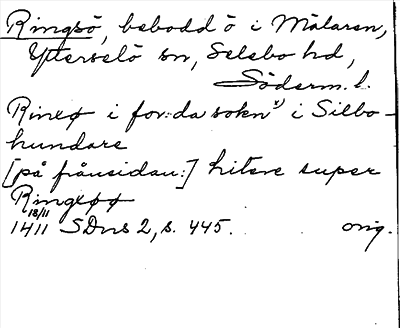 Ringsö, bebodd ö i Mälaren,
Ytterselö sn, Selebo hd,
Söderm. l.
Rinxø i for:da sokn x) i Silbo-
hundare
[på frånsidan:] hitere super
Ringxøø
18/11
1411 SDns 2, s. 445. orig.